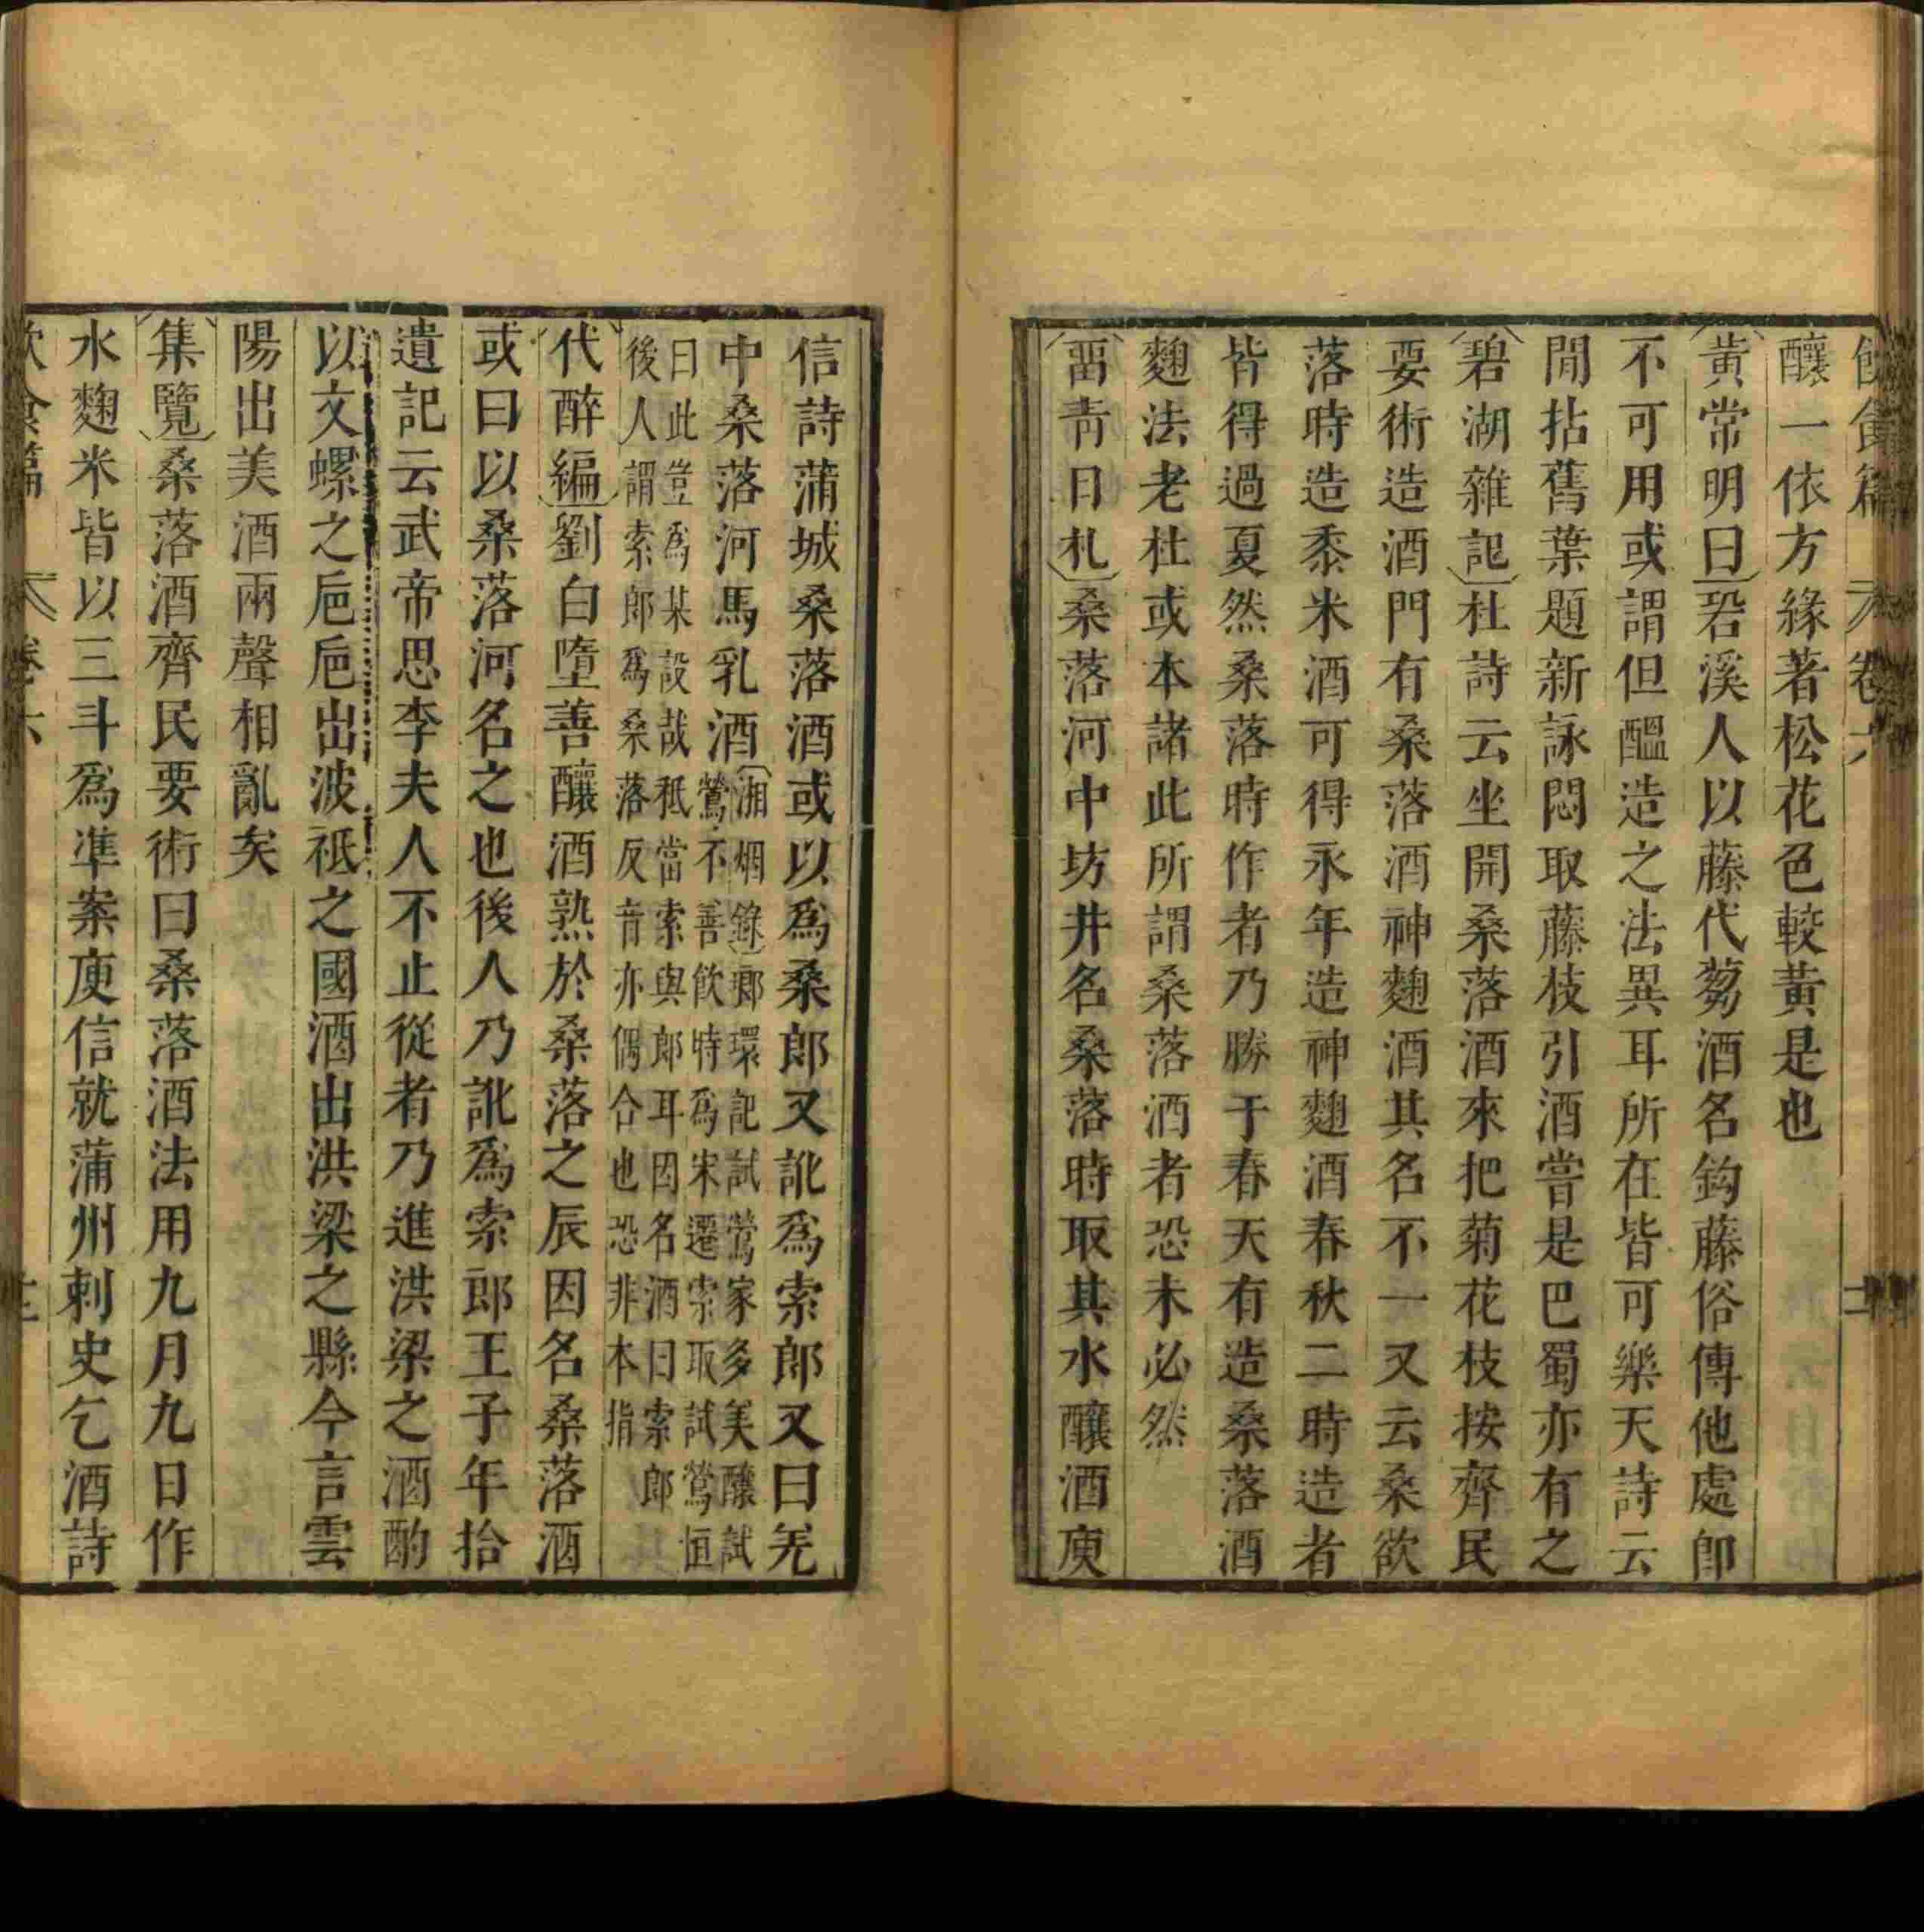 飲食篇 卷六 十二
釀一依方緣著松花色較黃是也
黃常明曰砦溪人以藤代蒭酒名鈎藤俗傳他處卽
不可用或謂但醞造之法異耳所在皆可樂天詩云
閒拈舊葉題新詠悶取藤枝引酒嘗是巴蜀亦有之
碧湖雜記杜詩云坐開桑落酒來把菊花枝按齊民
要術造酒門有桑落酒神麴酒其名不一又云桑欲
落時造黍米酒可得永年造神麴酒春秋二時造者
皆得過夏然桑落時作者乃勝于春天有造桑落酒
麴法老杜或本諸此所謂桑落酒者恐未必然
畱靑日札桑落河中坊井名桑落時取其水釀酒庾
信詩蒲城桑落酒或以爲桑郎又訛爲索郎又曰羌
中桑落河馬乳酒湘烟錄瑯環記試鶯家多美釀試
鶯不善飲時爲宋遷索取試鶯恒
曰此豈爲某設哉秪當索與郎耳因名酒曰索郎
後人謂索郎爲桑落反音亦偶合也恐非本指
代醉編劉白墮善釀酒熟於桑落之辰因名桑落酒
或曰以桑落河名之也後人乃訛爲索郎王子年拾
遺記云武帝思李夫人不止從者乃進洪梁之酒酌
以文螺之巵巵出波祗之國酒出洪梁之縣今言雲
陽出美酒兩聲相亂矣
集覽桑落酒齊民要術曰桑落酒法用九月九日作
水麴米皆以三斗爲準案庾信就蒲州刺史乞酒詩
飲食篇 卷六